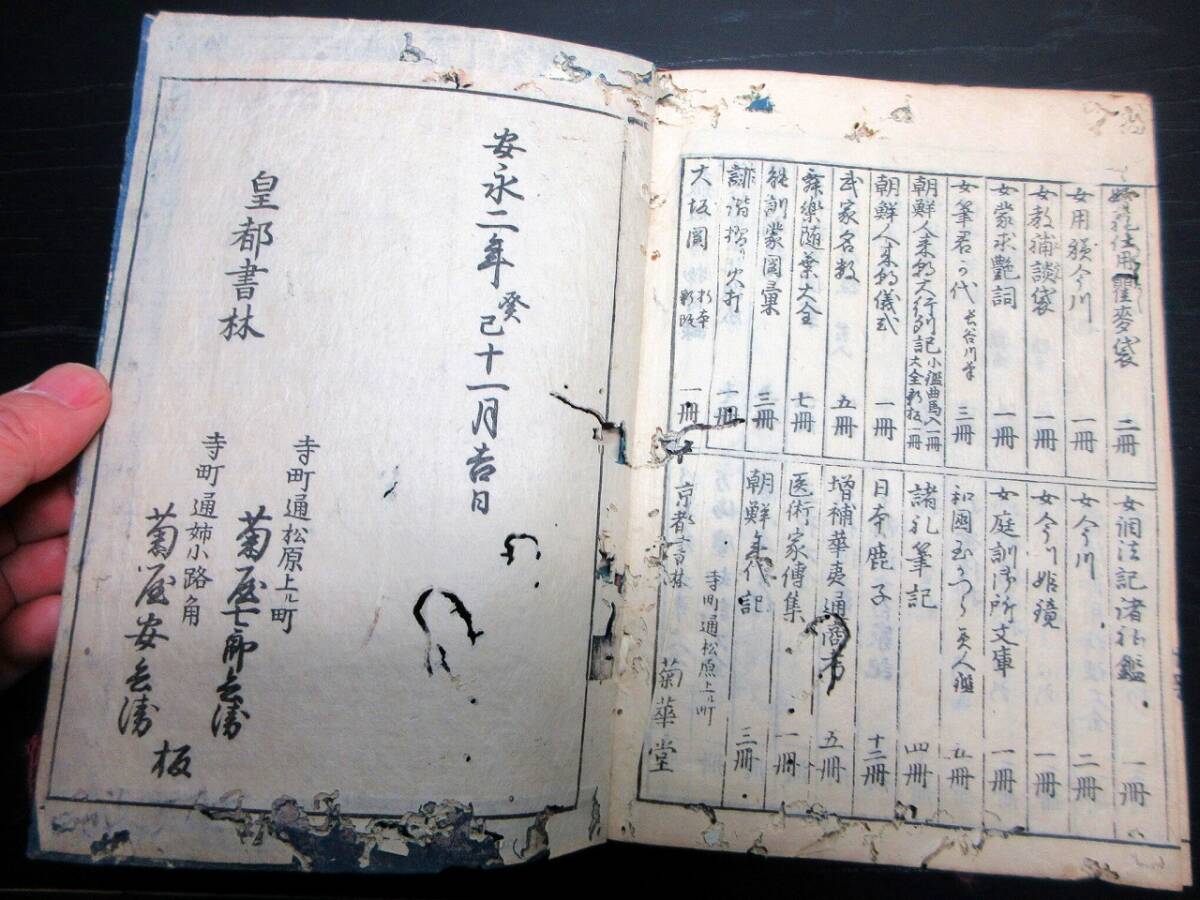 女用㒵今川 一冊
女教補談袋 一冊
女蒙求艶詞 一冊
女筆君が代 長谷川筆 三冊
朝鮮人来朝大行列記 小濫曲馬入一冊 大全新板一冊
朝鮮人来朝儀式 一冊
武家名数 五冊
舞樂随葉大全 七冊
能訓蒙図彙 三冊
誹諧摺火打 一冊
大坂図 一冊
女調法記諸礼鑑 一冊
女今川 二冊
女今川姫鏡 一冊
女庭訓御所文庫 一冊
和國玉かつら美人鑑 五冊
諸礼筆記 四冊
日本鹿子 十二冊
増補華夷通商考 五冊
医術家傳集 一冊
朝鮮年代記 三冊
京都書林 寺町通松原上ル町 菊華堂
安永二年癸巳十一月吉日
皇都書林
寺町通松原上ル町
菊屋七郎兵衛
寺町通姉小路角
菊屋安兵衛
板